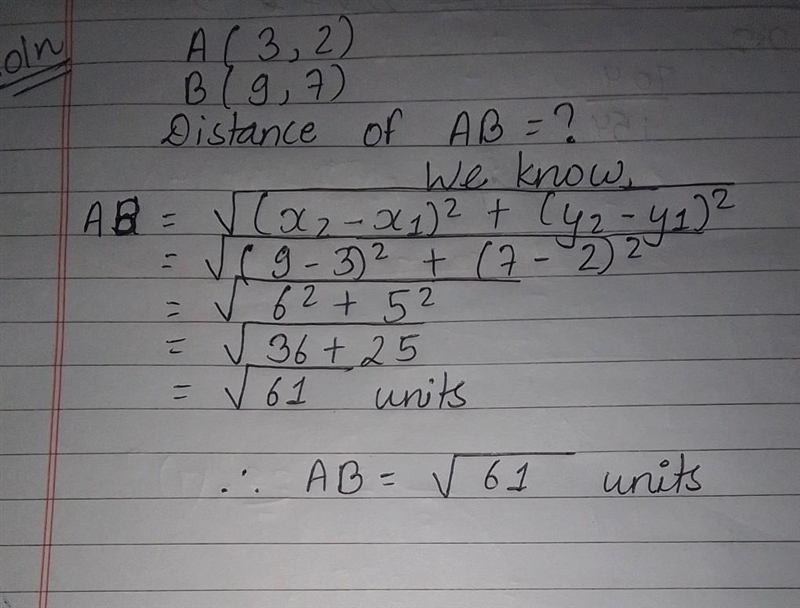 oln
A ( 3 , 2 )
B ( 9 , 7 )
Distance of AB = ?
We know,
AB = √(x₂ - x₁)² + (y₂ - y₁)²
= √( 9 - 3)² + (7 - 2)²
= √ 6² + 5²
= √ 36 + 25
= √ 61 units
∴ AB = √ 61 units